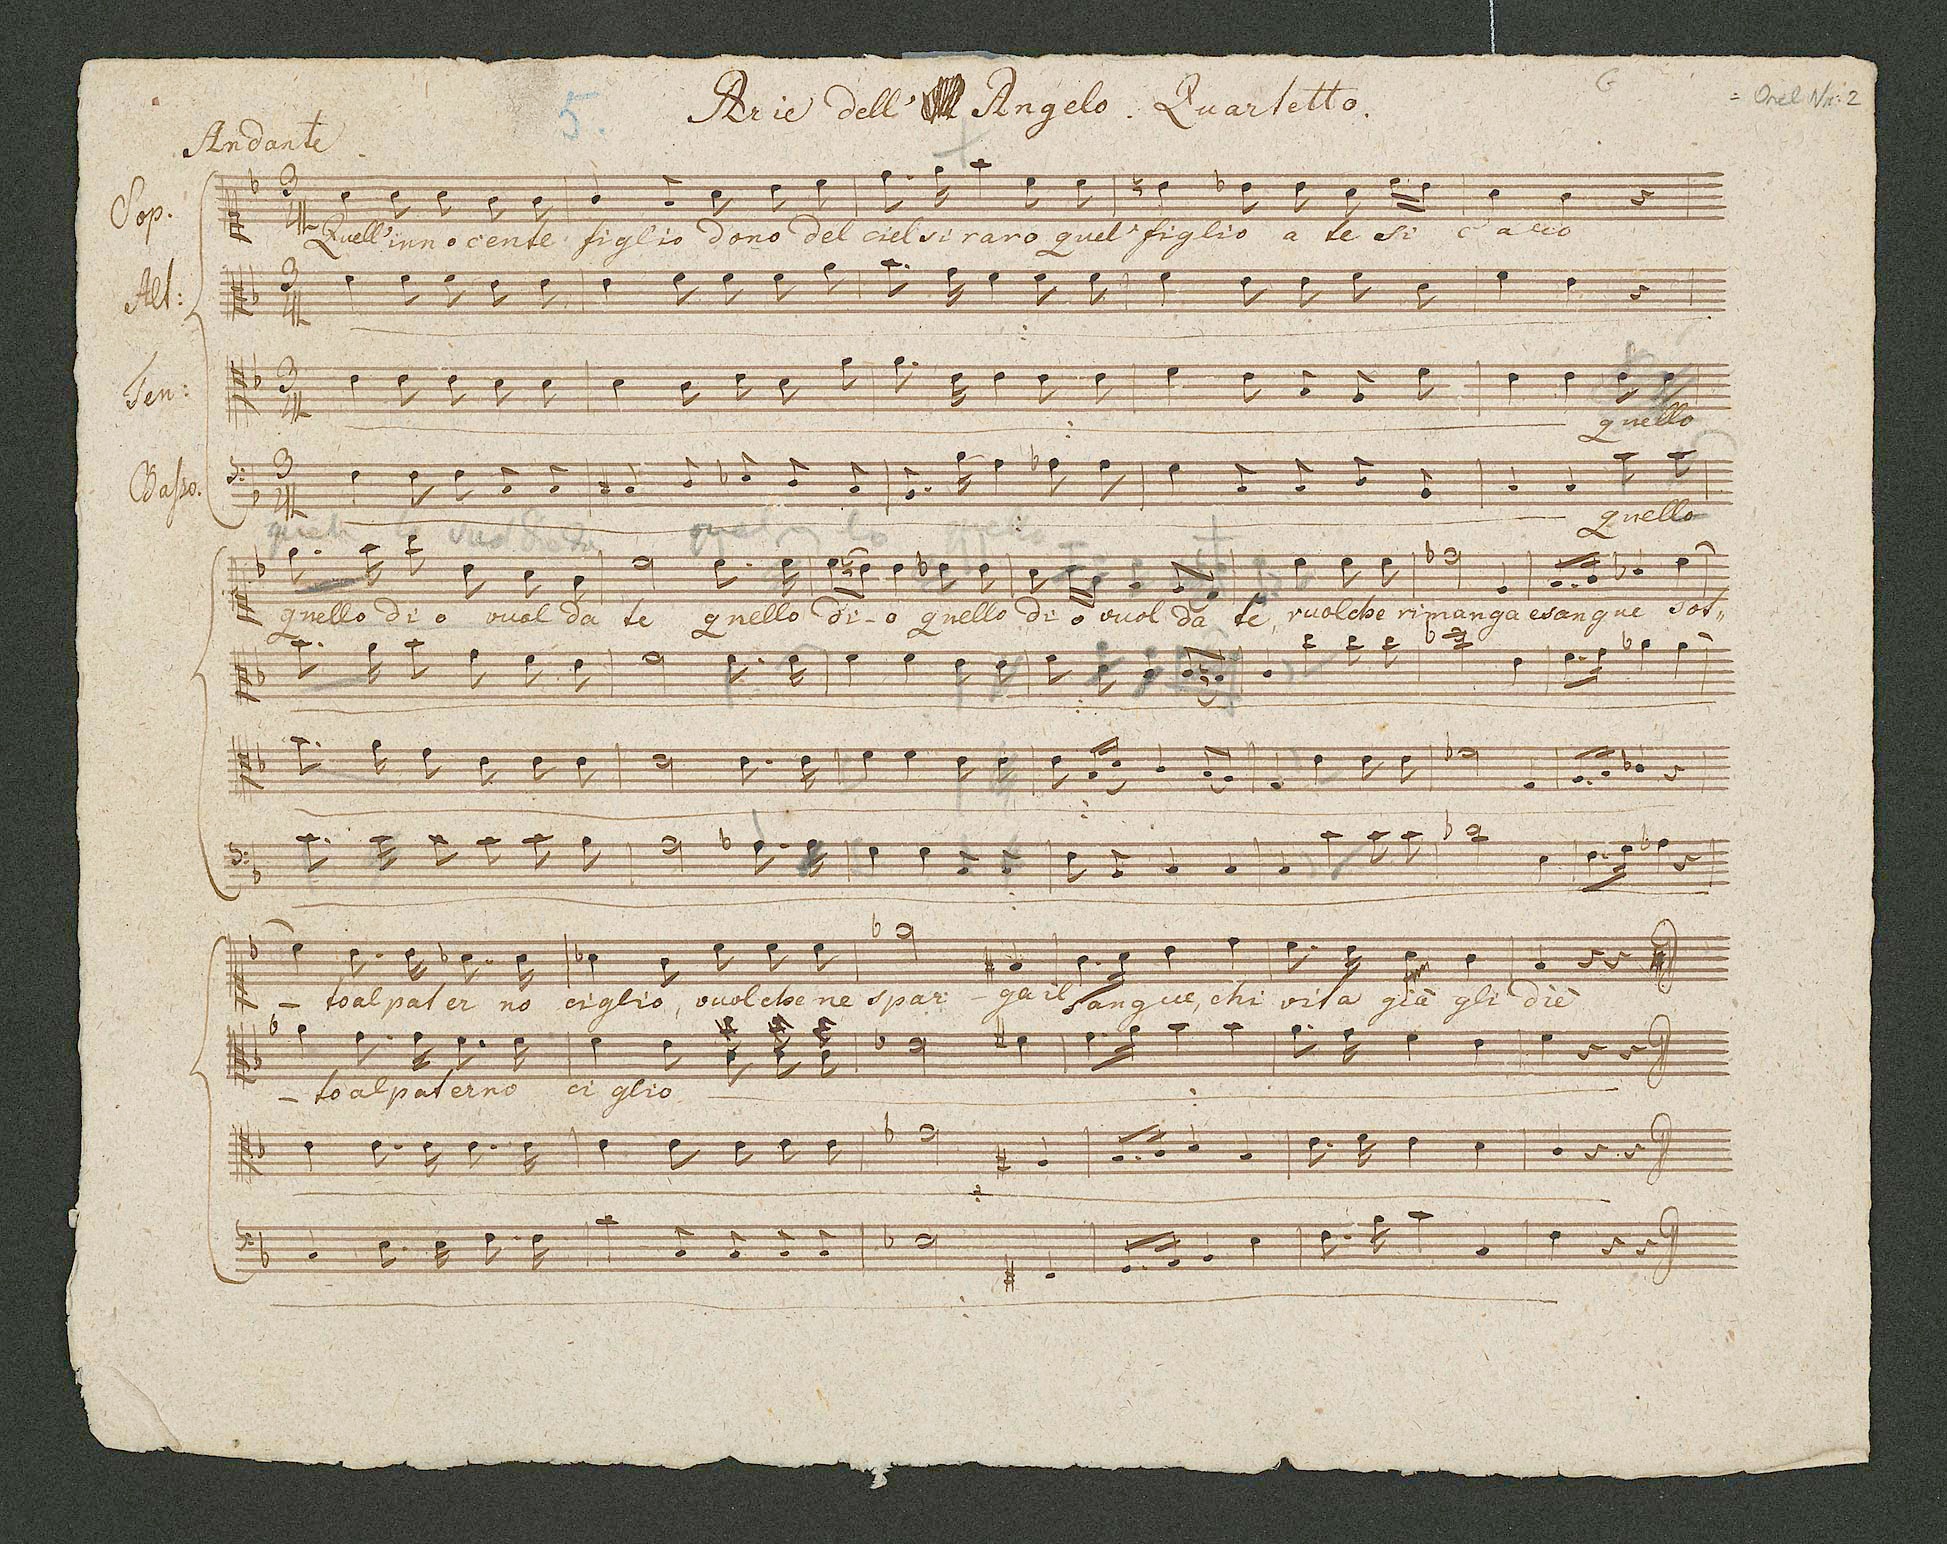 5. Arie dell' Angelo. Quartetto. 6 = Orel Nr: 2
Andante
Sop.
Quell'innocente figlio dono del ciel si raro quel' figlio a te si caro
Alt:
Ten:
quello
Basso.
quello
quello
quello di o vuol da te quello di-o quello di o vuol da te, vuolche rimanga esangue sot„
- toalpater no ciglio, vuolche ne spar - ga il sangue, chi vita già gli diè
- toalpaterno ciglio